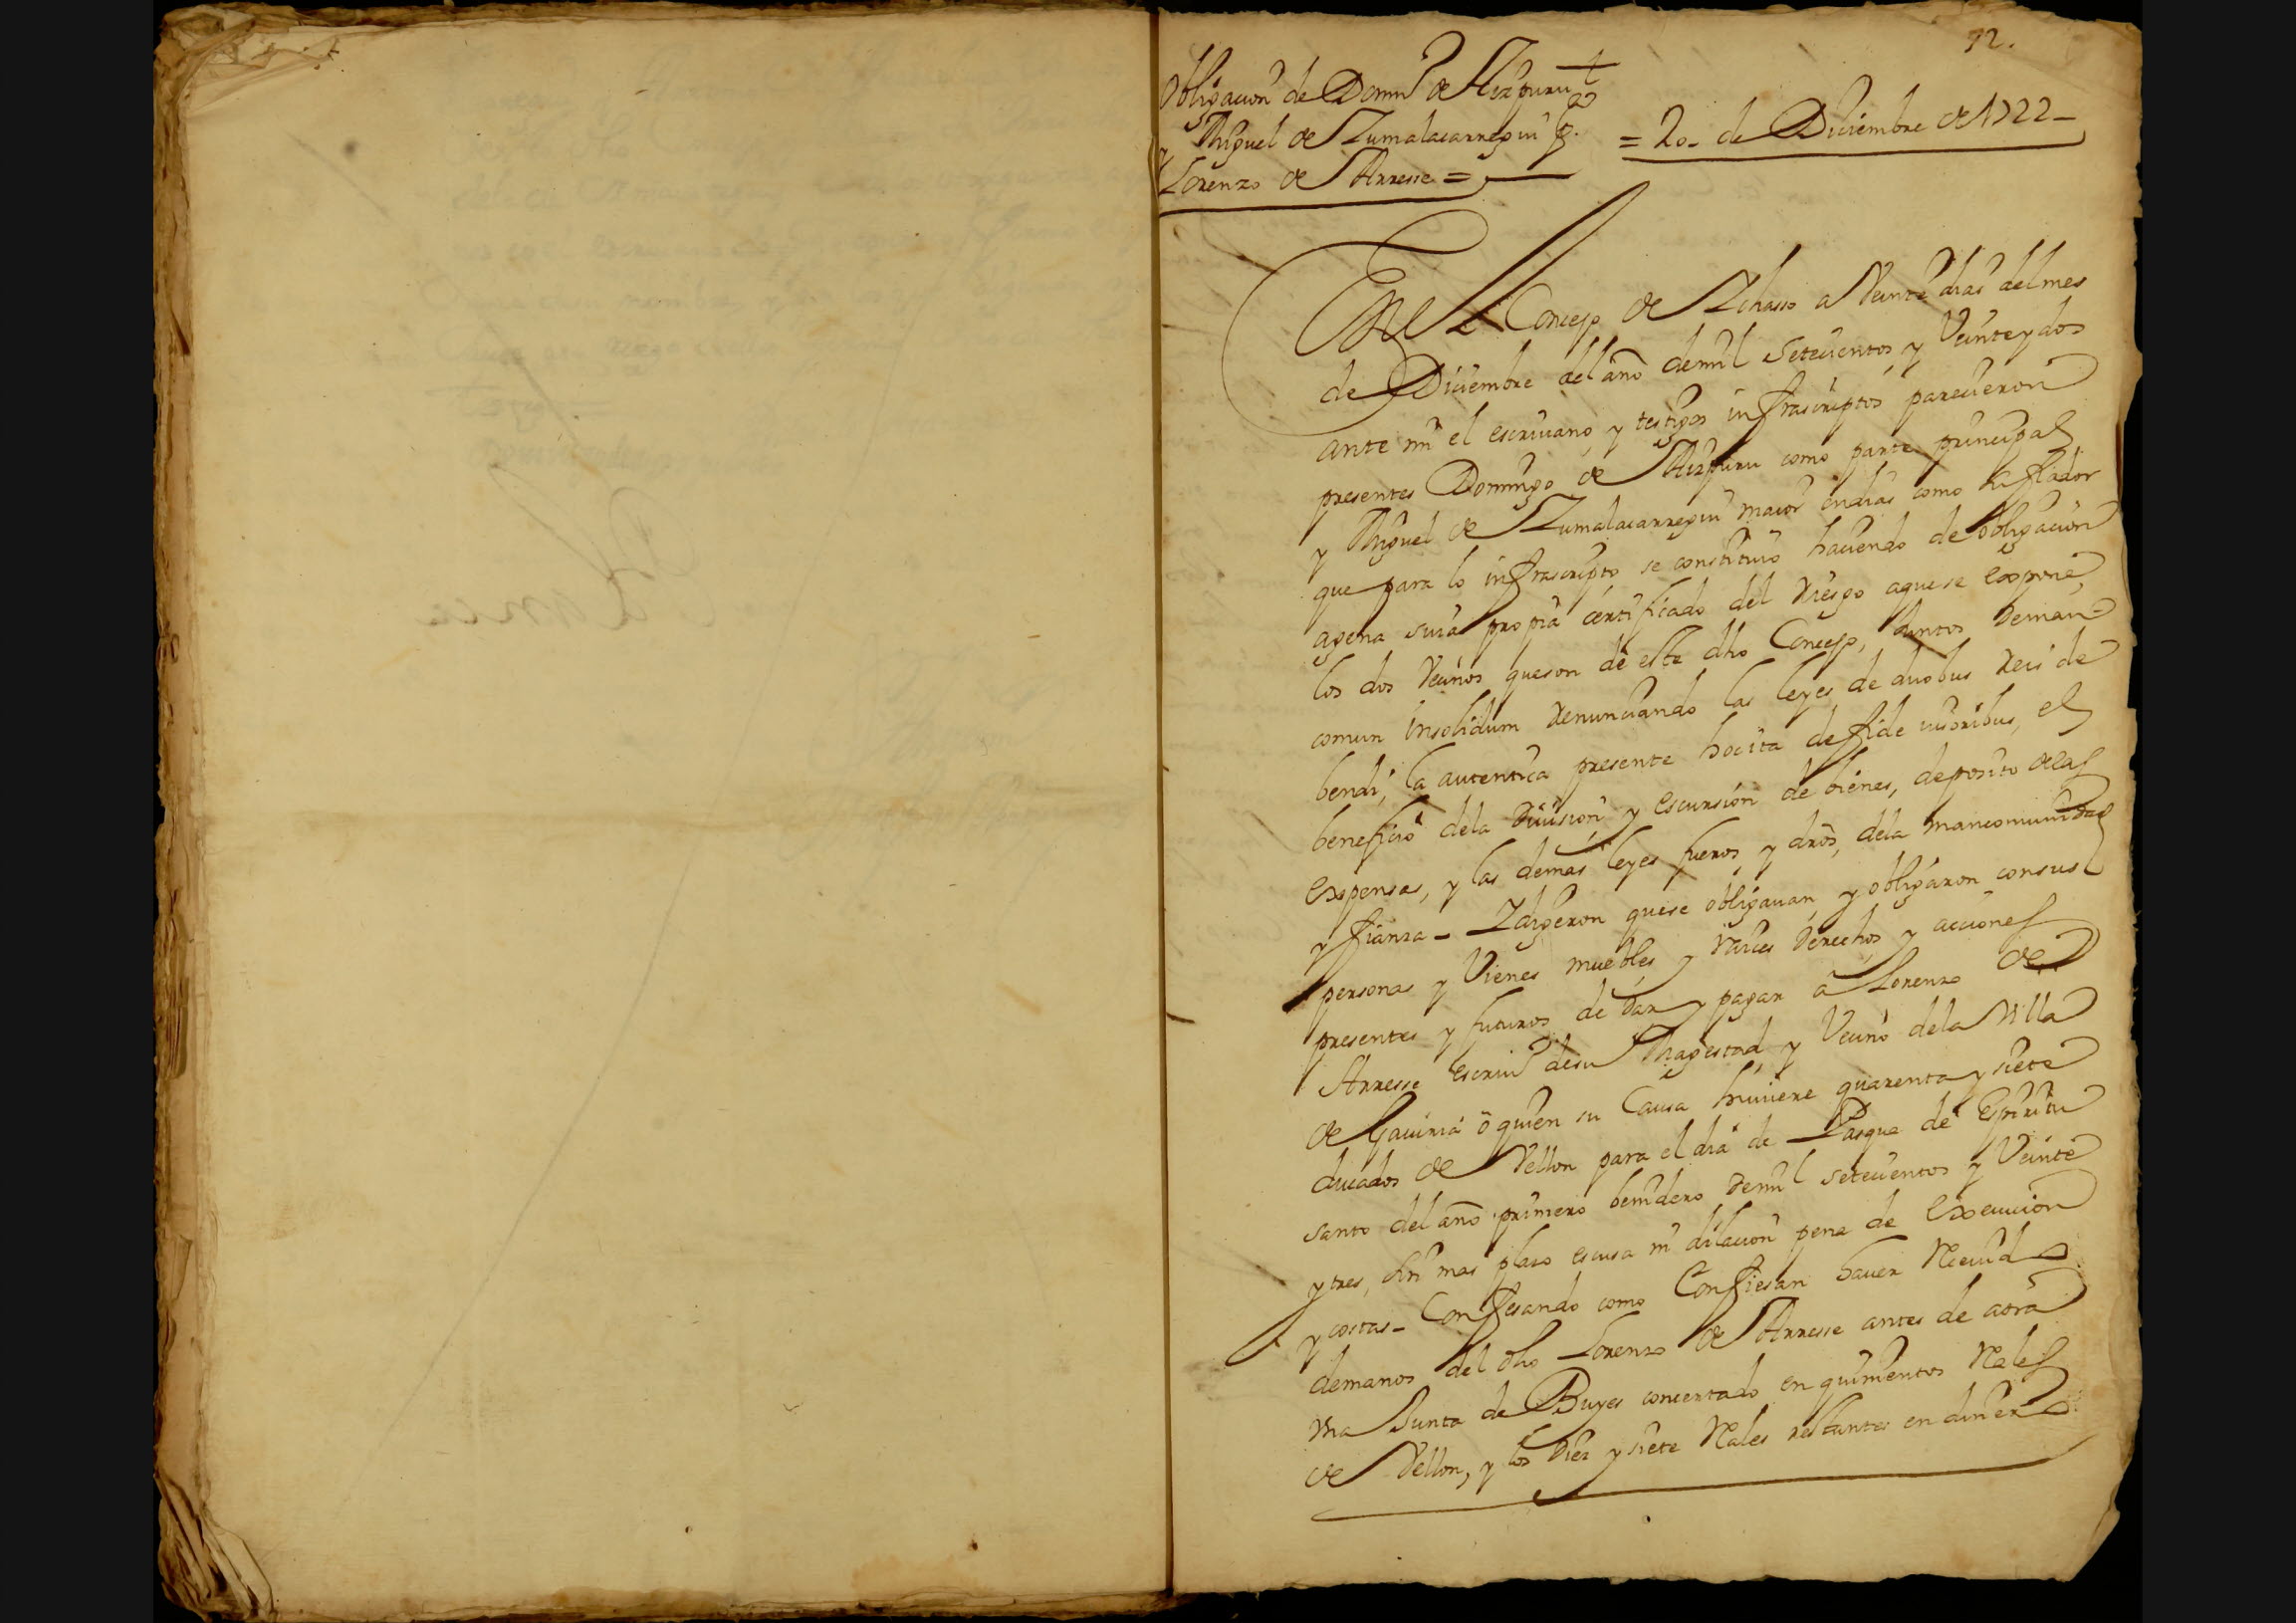 92.
Obligacion de Domº de Aizpuru
y Miguel de Zumalacarregui
Lorenzo de Arresse =
= 20. de Diciembre de 1722 -
En el Concejo de Ichasso a Veinte dias del mes
de Diciembre del año demil Setecientos y Veinteydos
ante mi el escriuano y testigos infrascriptos parecieron
presentes Domingo de Aizpuru como parte principal
y Miguel de Zumalacarregui maior endias como su fiador
que para lo infrascripto se constituio haciendo de obligacion
agena suia propia certificado del riesgo aquese expone,
los dos Vecinos queson de este dho Concejo, Juntos deman
comun insolidum renunciando las leyes de duobus reis de
bendi, la autentica presente hocita de fide iusoribus, el
beneficio dela diuision y escursion de bienes, deposito delas
expensas, y las demas leyes fueros y dros, dela mancomunidad
y fianza - Idigeron quese obligauan y obligaron consus
personas y Vienes muebles y raices derechos y acciones
presentes y futuros de dar y pagar a Lorenzo de
Arresse escriuº desu Magestad y Vecino dela Villa
de Gauiria ô quien su Causa huuiere quarenta y siete
ducados de Vellon para el dia de Pasqua de Espiritu
santo del año primero benidero demil setecientos y Veinte
ytres, sin mas plazo escusa ni dilacion pena de Execucion
y costas - Confesando como Confiesan hauer Receuido
demanos del dho Lorenzo de Arresse antes de aora
Vna Junta de Buyes concertado en quinientos Rales
de Vellon, y los diez y siete Rales restantes en dinero